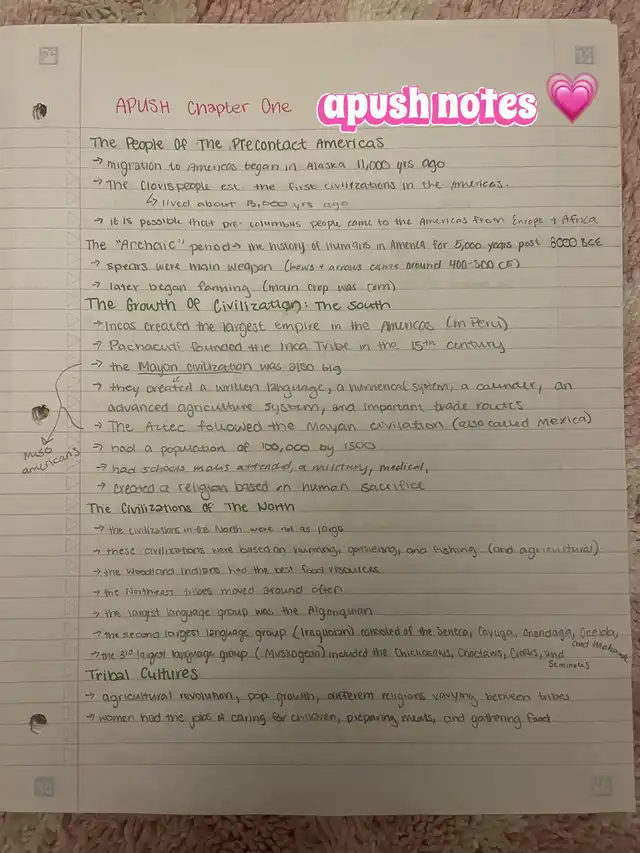 APUSH Chapter One
apush notes
The People Of The Precontact Americas
→ migration to Americas began in Alaska 11,000 yrs ago
→ The Clovis people est. the first civilizations in the Americas.
↳ lived about 13,000 yrs ago
→ it is possible that pre-columbus people came to the Americas from Europe + Africa
The "Archaic" period → the history of humans in America for 5,000 years post 8000 BCE
→ spears were main weapon (bows + arrows came around 400-500 CE)
→ later began farming (main crop was corn)
The Growth Of Civilization: The South
→ Incas created the largest empire in the Americas (in Peru)
→ Pachacuti founded the Inca Tribe in the 15th century
→ the Mayan civilization was also big
→ they created a written language, a numerical system, a calander, an
advanced agriculture system, and important trade routes
→ The Aztec followed the Mayan civilation (also called Mexica)
meso
americans
→ had a population of 100,000 by 1500
→ had schools males attended, a military, medical,
→ created a religion based on human sacrifice
The Civilizations Of The North
→ the civilizations in the North were not as large
→ these civilizations were based on hunting, gathering, and fishing (and agricultural)
→ the Woodland Indians had the best food resources
→ the Northeast tribes moved around often
→ the largest language group was the Algonquian
→ the second largest language group (Iroquoian) consisted of the Seneca, Cayuga, Onondaga, Oneida,
and Mohawk
→ the 3rd largest language group (Muskogean) included the Chickasaws, Choctaws, Creeks, and
Seminoles
Tribal Cultures
→ agricultural revolution, pop. growth, different religions varying between tribes
→ women had the jobs of caring for children, preparing meals, and gathering food